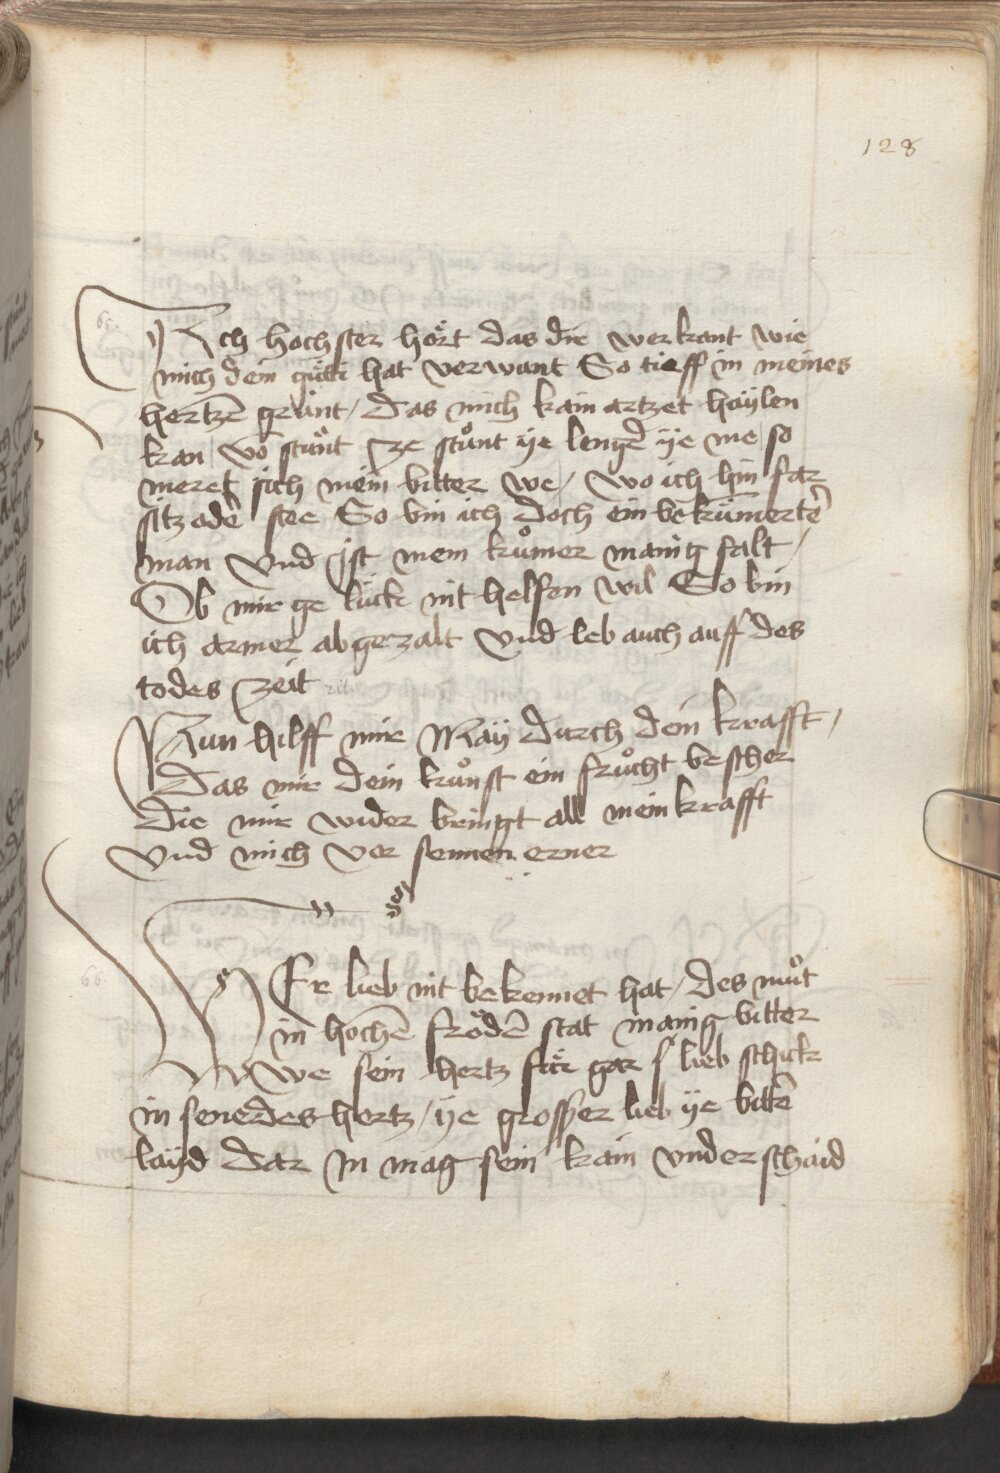 128
Ach hochster hort das die wer kant wie
mich dein gu̍ti hat verwant So tieff in meines
hertzē grünt / das mich kain artzet haÿlen
kan / vō stůnt ze stůnt ÿe lengē ÿe me so
meret sich mein bitter we / wo ich hin far
sitz odē stee So bin ich doch ein bekümertē
man vnd ist mein ku̍mer manig falt /
Ob mir ge lück nit helfen wil So bin
ich armer ab gezalt vnd leb auch auff des
todes zeit
Nun hilff mir Maÿ durch dein krafft /
Das mir dein kůnst ein frůcht bescher
die mir wider bringt all mein krafft
vnd mich vor sennen erner
66
Wer lieb nit bekennet hat / des můt
in hochē frödē stat manig bitter
we sein hertz für gar lieb schick
in senedes hertz / ÿe grosser lieb ÿe bittē
laÿd dar in mag sein kain vnderschaid